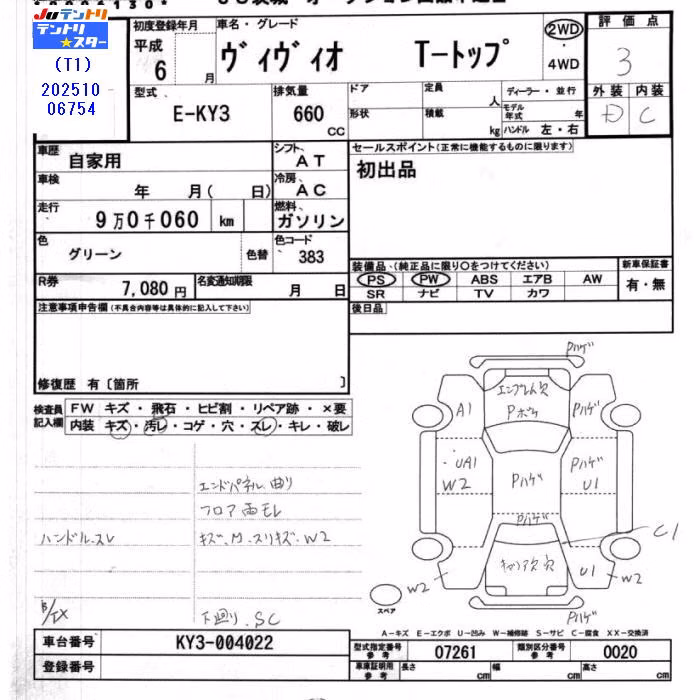 Juテントリ
テントリ
★スター
(T1)
202510
06754
初度登録年月
平成 6 月
車名・グレード
ヴィヴィオ T-トップ
2WD
・
4WD
評価点
3
外装 内装
D C
型式
E-KY3
排気量
660 CC
ドア
形状
定員 人
積載 kg
ディーラー・並行
モデル年式 年
ハンドル 左・右
車歴 自家用
シフト AT
セールスポイント(正常に機能するものに限ります)
初出品
車検 年 月( 日)
冷房 AC
走行 9万0千060 km
燃料 ガソリン
色 グリーン 色替
色コード 383
装備品(純正品に限り○をつけてください)
新車保証書
PS PW ABS エアB AW
SR ナビ TV カワ
有・無
R券 7,080円
名変通知期限 月 日
後日品
注意事項申告欄(不具合内容等は具体的に記入して下さい)
修復歴 有〔箇所 〕
検査員記入欄
FW キズ・飛石・ヒビ割・リペア跡・×要
内装 キズ・汚レ・コゲ・穴・スレ・キレ・破レ
エンドパネル曲リ
フロア雨モレ
ハンドルスレ
キズ、M、スリキズ、W2
下廻リ、SC
Pハゲ
エンブレム穴
Pボケ
A1
Pハゲ
UA1
W2
Pハゲ
Pハゲ
U1
Pハゲ
C1
U1
W2
W2
スペア
Pハゲ
A-キズ E-エクボ U-凹み W-補修跡 S-サビ C-腐食 XX-交換済
車台番号 KY3-004022
型式指定番号 参考 07261
類別区分番号 参考 0020
登録番号
車庫証明用 参考
長さ cm
幅 cm
高さ cm